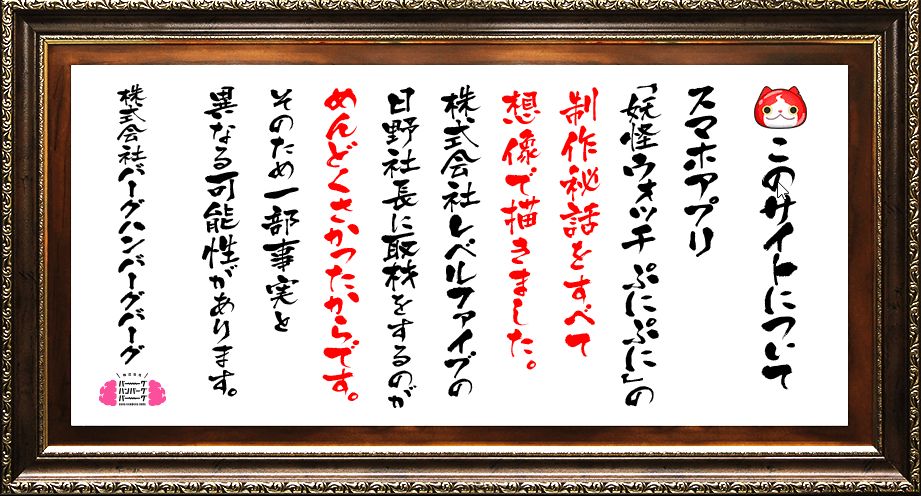 このサイトについて
スマホアプリ
「妖怪ウォッチ ぷにぷに」の
制作秘話をすべて
想像で描きました。
株式会社レベルファイブの
日野社長に取材をするのが
めんどくさかったからです。
そのため一部事実と
異なる可能性があります。
株式会社バーグハンバーグバーグ
株式会社
バーグ
ハンバーグ
バーグ